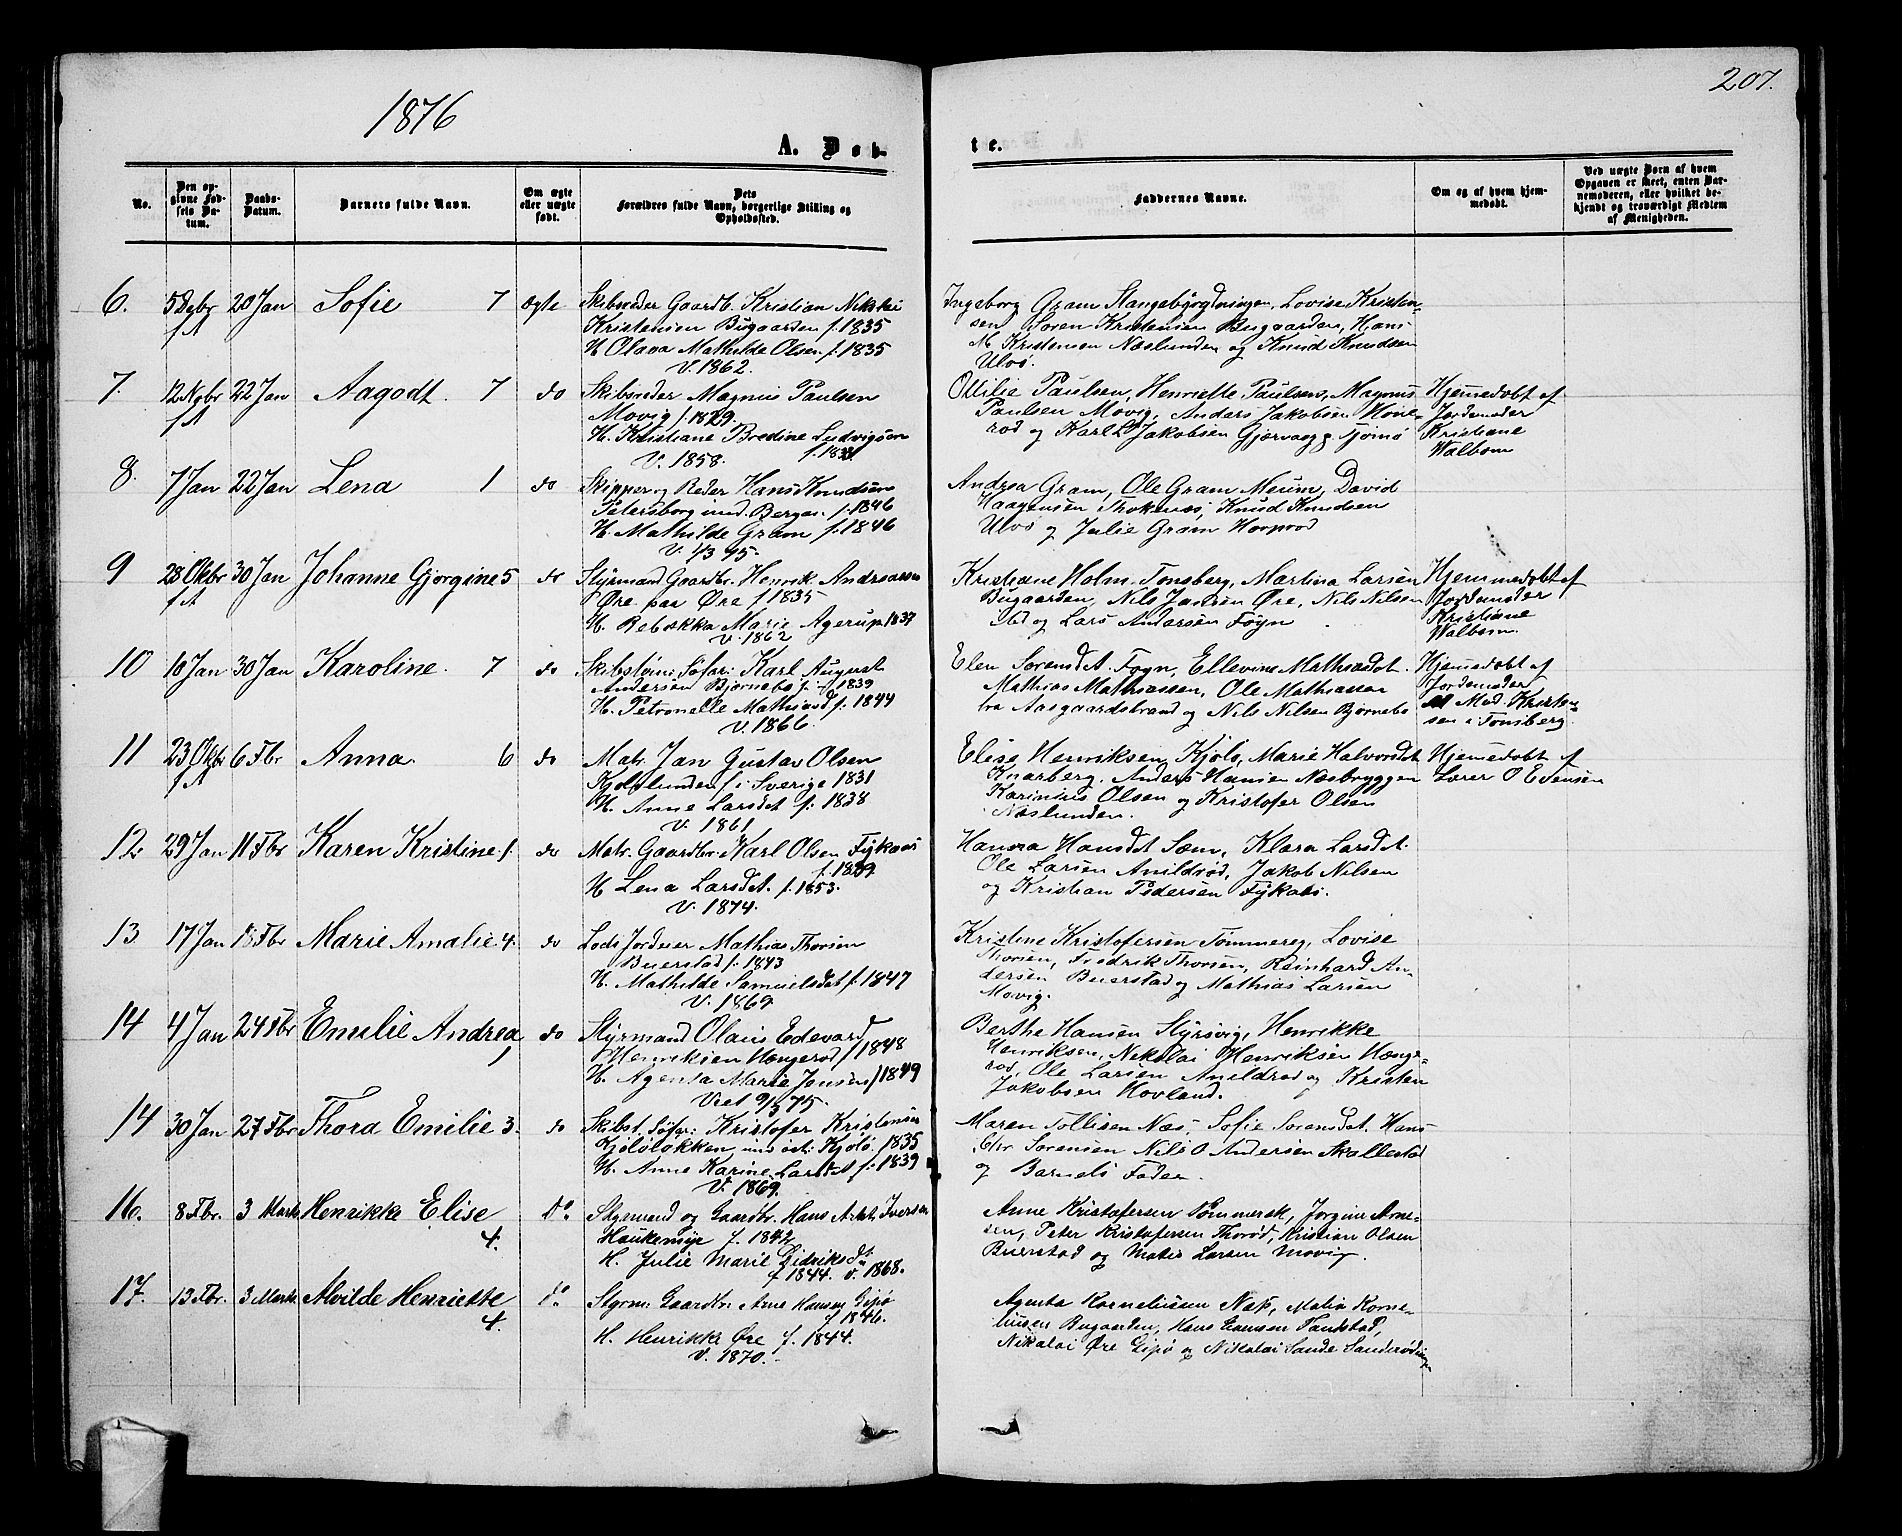 1876
207.
A. Døb-
te.
No.
Den op-
givne Fød-
sels Da-
tum.
Daabs-
Datum.
Barnets fulde Navn.
Om ægte
eller uægte
født.
Dets
Forældres fulde Navn, borgerlige Stilling og
Opholdssted.
Faddernes Navne.
Om og af hvem hjem-
medøbt.
Ved uægte Børn af hvem
Opgaven er skeet, enten Bar-
nemoderen, eller hvilket be-
kjendt og troværdigt Medlem
af Menigheden.
6. 5 Dcbr 20 Jan Sofie 7 ægte
f A
Skibsreder Gaardb. Kristian
Kristensen Bugaarden f. 1835
H. Olava Mathilde Olsen f. 1835
V. 1862.
Ingeborg Gram Slangsbygdningen, Lovise Kristen-
sen Soren Kristensen Bugaarden, Hans
M Kristensen Næslunden og Knud Knudsen
Ulvø.
7. 12 Nvbr 22 Jan Aagodt 7 do
f A
Skibsreder Magnus Paulsen
Movig f. 1829.
H. Kristiane Bredine Ludvigsen
V. 1858. f. 1838
Ottilie Paulsen, Henriette Paulsen, Magnus
Paulsen Movig, Anders Jakobsen Høne-
rød og Karl L Jakobsen Gjærvaag Tjømø
Hjemmedøbt af
Jordemoder
Kristiane
Walbom
8. 7 Jan 22 Jan Lena 1 do
Skipper og Reder Hans Knudsen
Petersborg und. Bergan f. 1846
H. Mathilde Gram f. 1846
V. 1/3 75.
Andrea Gram, Ole Gram Meum, David
Haagensen Thoknæs, Knud Knudsen
Ulvø og Julie Gram Horprod
9 28 Okbr 30 Jan Johanne Gjørgine 5 do
f A
Styrmand Gaardbr. Henrik Andreassen
Øre paa Øre f. 1835
H. Rebekka Marie Agerup 1837
V. 1862
Kristiane Holm Tønsberg, Martina Larsen
Bugaarden, Nils Jansen Øre, Nils Nilsen
ibd og Lars Andersen Føyn
Hjemmedøbt af
Jordemoder
Kristiane
Walbom.
10 10 Jan 30 Jan Karoline. 7 do
Skibstøm: Søfar: Karl August
Andersen Bjørnebo f. 1839
H. Petronelle Mathiasd f. 1844
V. 1866.
Elen Sorensdt. Føyn, Ellevine Mathiasdt.
Mathias Mathiassen, Ole Mathiassen
fra Aasgaardstrand og Nils Nilsen Bjørnebo
Hjemmedøbt af
Jordemoder
Mad. Kristen-
sen i Tønsberg.
11 23 Okbr 6 Fbr Anna. 6 do
f A
Matr. Jan Gustav Olsen
Kjølslunden f. i Sverige 1831
H. Anne Larsdt f. 1838
V. 1861
Elise Henriksen Kjølø, Marie Halvorsdt
Knarberg, Anders Hansen Næsbryggen
Karinius Olsen og Kristofer Olsen
Næslunden.
Hjemmedøbt af
Lærer O Evensen
12 29 Jan 11 Fbr Karen Kristine. 1. do
Matr. Gaardbr. Karl Olsen Fykaas
f. 1849
H Lena Larsdt. f. 1853.
V. 1874.
Hanna Hansdt Sæm, Klara Larsdt.
Ole Larsen Amildrød, Jakob Nilsen
og Kristian Pedersen Fykaas.
13 17 Jan 18 Fbr Marie Amalie 4. do
Lods Jordeier Mathias Thorsen
Buerstad f. 1843
H. Mathilde Samuelsdat f. 1847
V. 1869.
Kristine Kristofersen Tømmereg, Lovise
Thorsen, Fredrik Thorsen, Reinhard An-
dersen Buerstad og Mathias Larsen
Movig.
14 4 Jan 24 Fbr Emilie Andrea do
1
Styrmand Olaus Edevard
Henriksen Hængerød f 1848
H. Agenta Marie Jensen f 1849
Viet 9/5 75.
Berthe Hansen Styrsvig, Henrikke
Henriksen, Nikolai Henriksen Hænge-
rød, Ole Larsen Amildrød og Kristen
Jakobsen Hovland.
14 30 Jan 27 Fbr Thora Emilie 3. do
Skibst. Søfar: Kristofer Kristensen
Kjøløløkken, und. Kjølø. f 1835
H. Anne Karine Larsdt f. 1839
V. 1869.
Maren Tollisen Næs, Sofie Sorensdt. Hans
Chr Sorensen Nils O Andersen Skallestad
og Barnets Fader.
16. 8 Fbr. 3 Marts Henrikke Elise do.
4.
Styrmand og Gaardbr. Hans A. Iversen
Haukemyr f. 1842
H. Julie Marie Didriksdr
f 1844. v. 1868.
Anne Kristofersen Tømmersk, Jørgine Arne-
sen, Peter Kristofersen Thorød, Kristian Olsen
Buerstad og Mathis Larsen Movig.
17. 13 Fbr. 3 Marts. Alvilde Henriette do
4.
Styrm: Gaardbr: Arne Hansen Gipø
f 1846.
H. Henrikke Øre f. 1844.
V. 1870.
Agenta Korneliusen Næs, Matia Korne-
liusen Bugaarden, Hans Evensen Sandstad,
Nikolai Øre Gipø og Nikolai Sande Sanderød